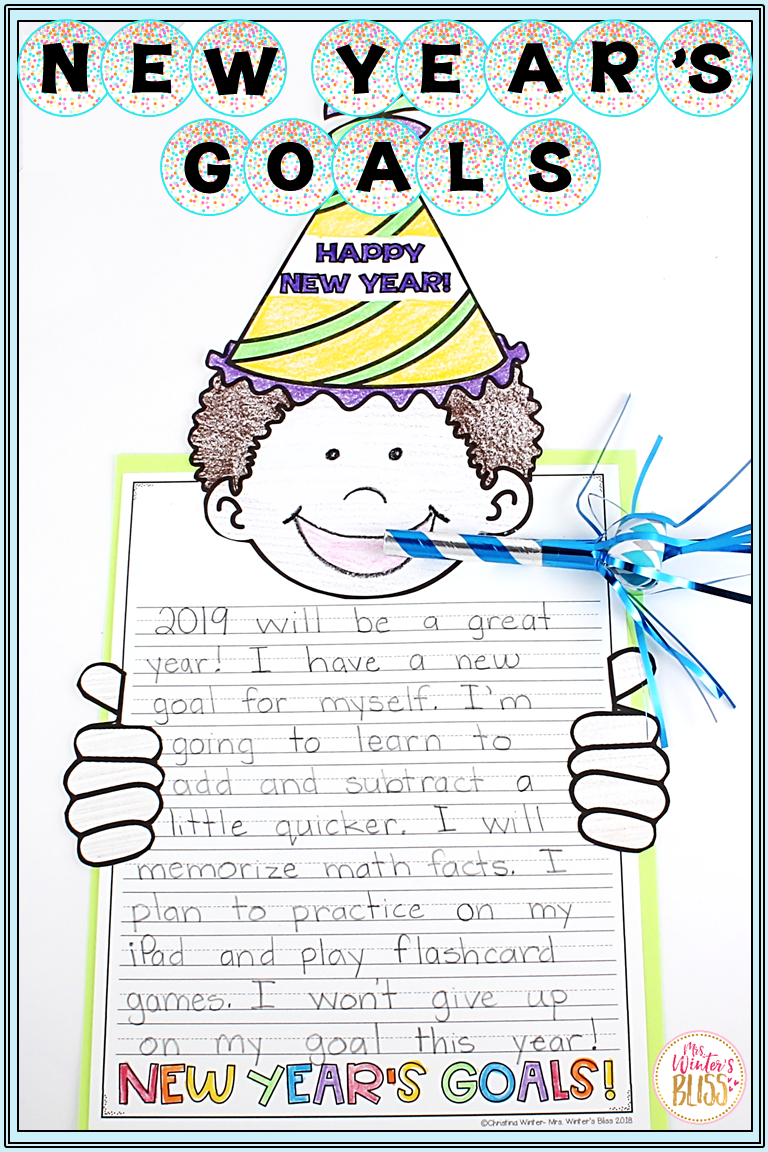 NEW YEAR'S
GOALS
HAPPY
NEW YEAR!
2019 will be a great
year! I have a new
goal for myself. I'm
going to learn to
add and subtract a
little quicker. I will
memorize math facts. I
plan to practice on my
iPad and play flashcard
games. I won't give up
on my goal this year!
NEW YEAR'S GOALS!
©Christina Winter- Mrs. Winter's Bliss 2018
Mrs.
Winter's
BLISS